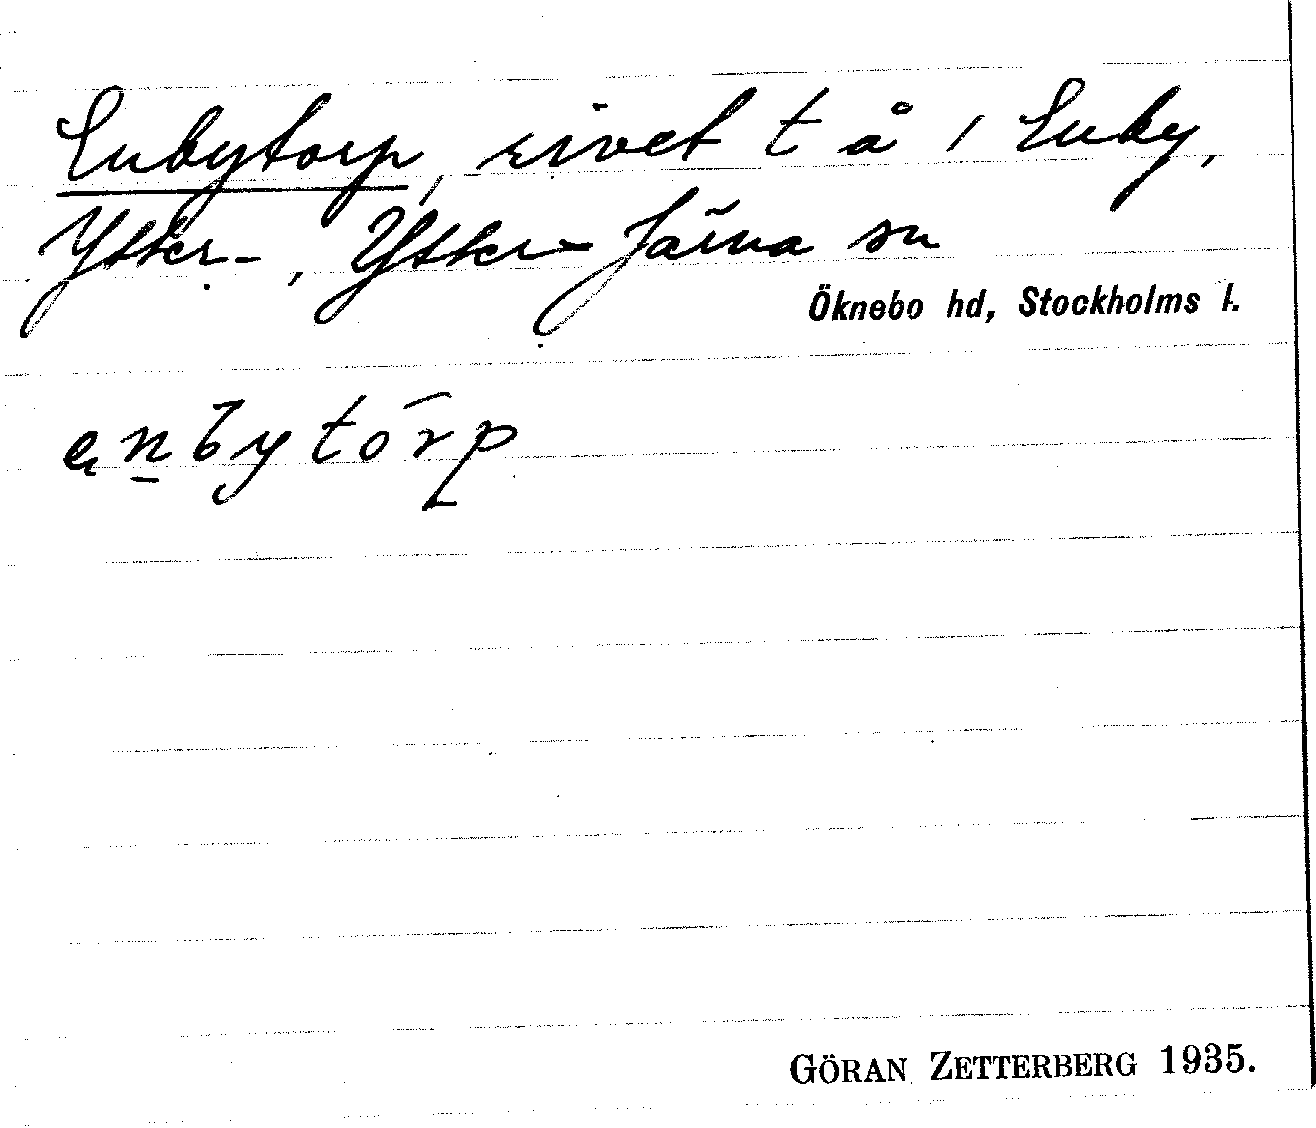 Enbytorp, rivet t å / Enby,
Ytter-, Ytter-Järna sn
Öknebo hd, Stockholms l.
enbytórp
GÖRAN ZETTERBERG 1935.